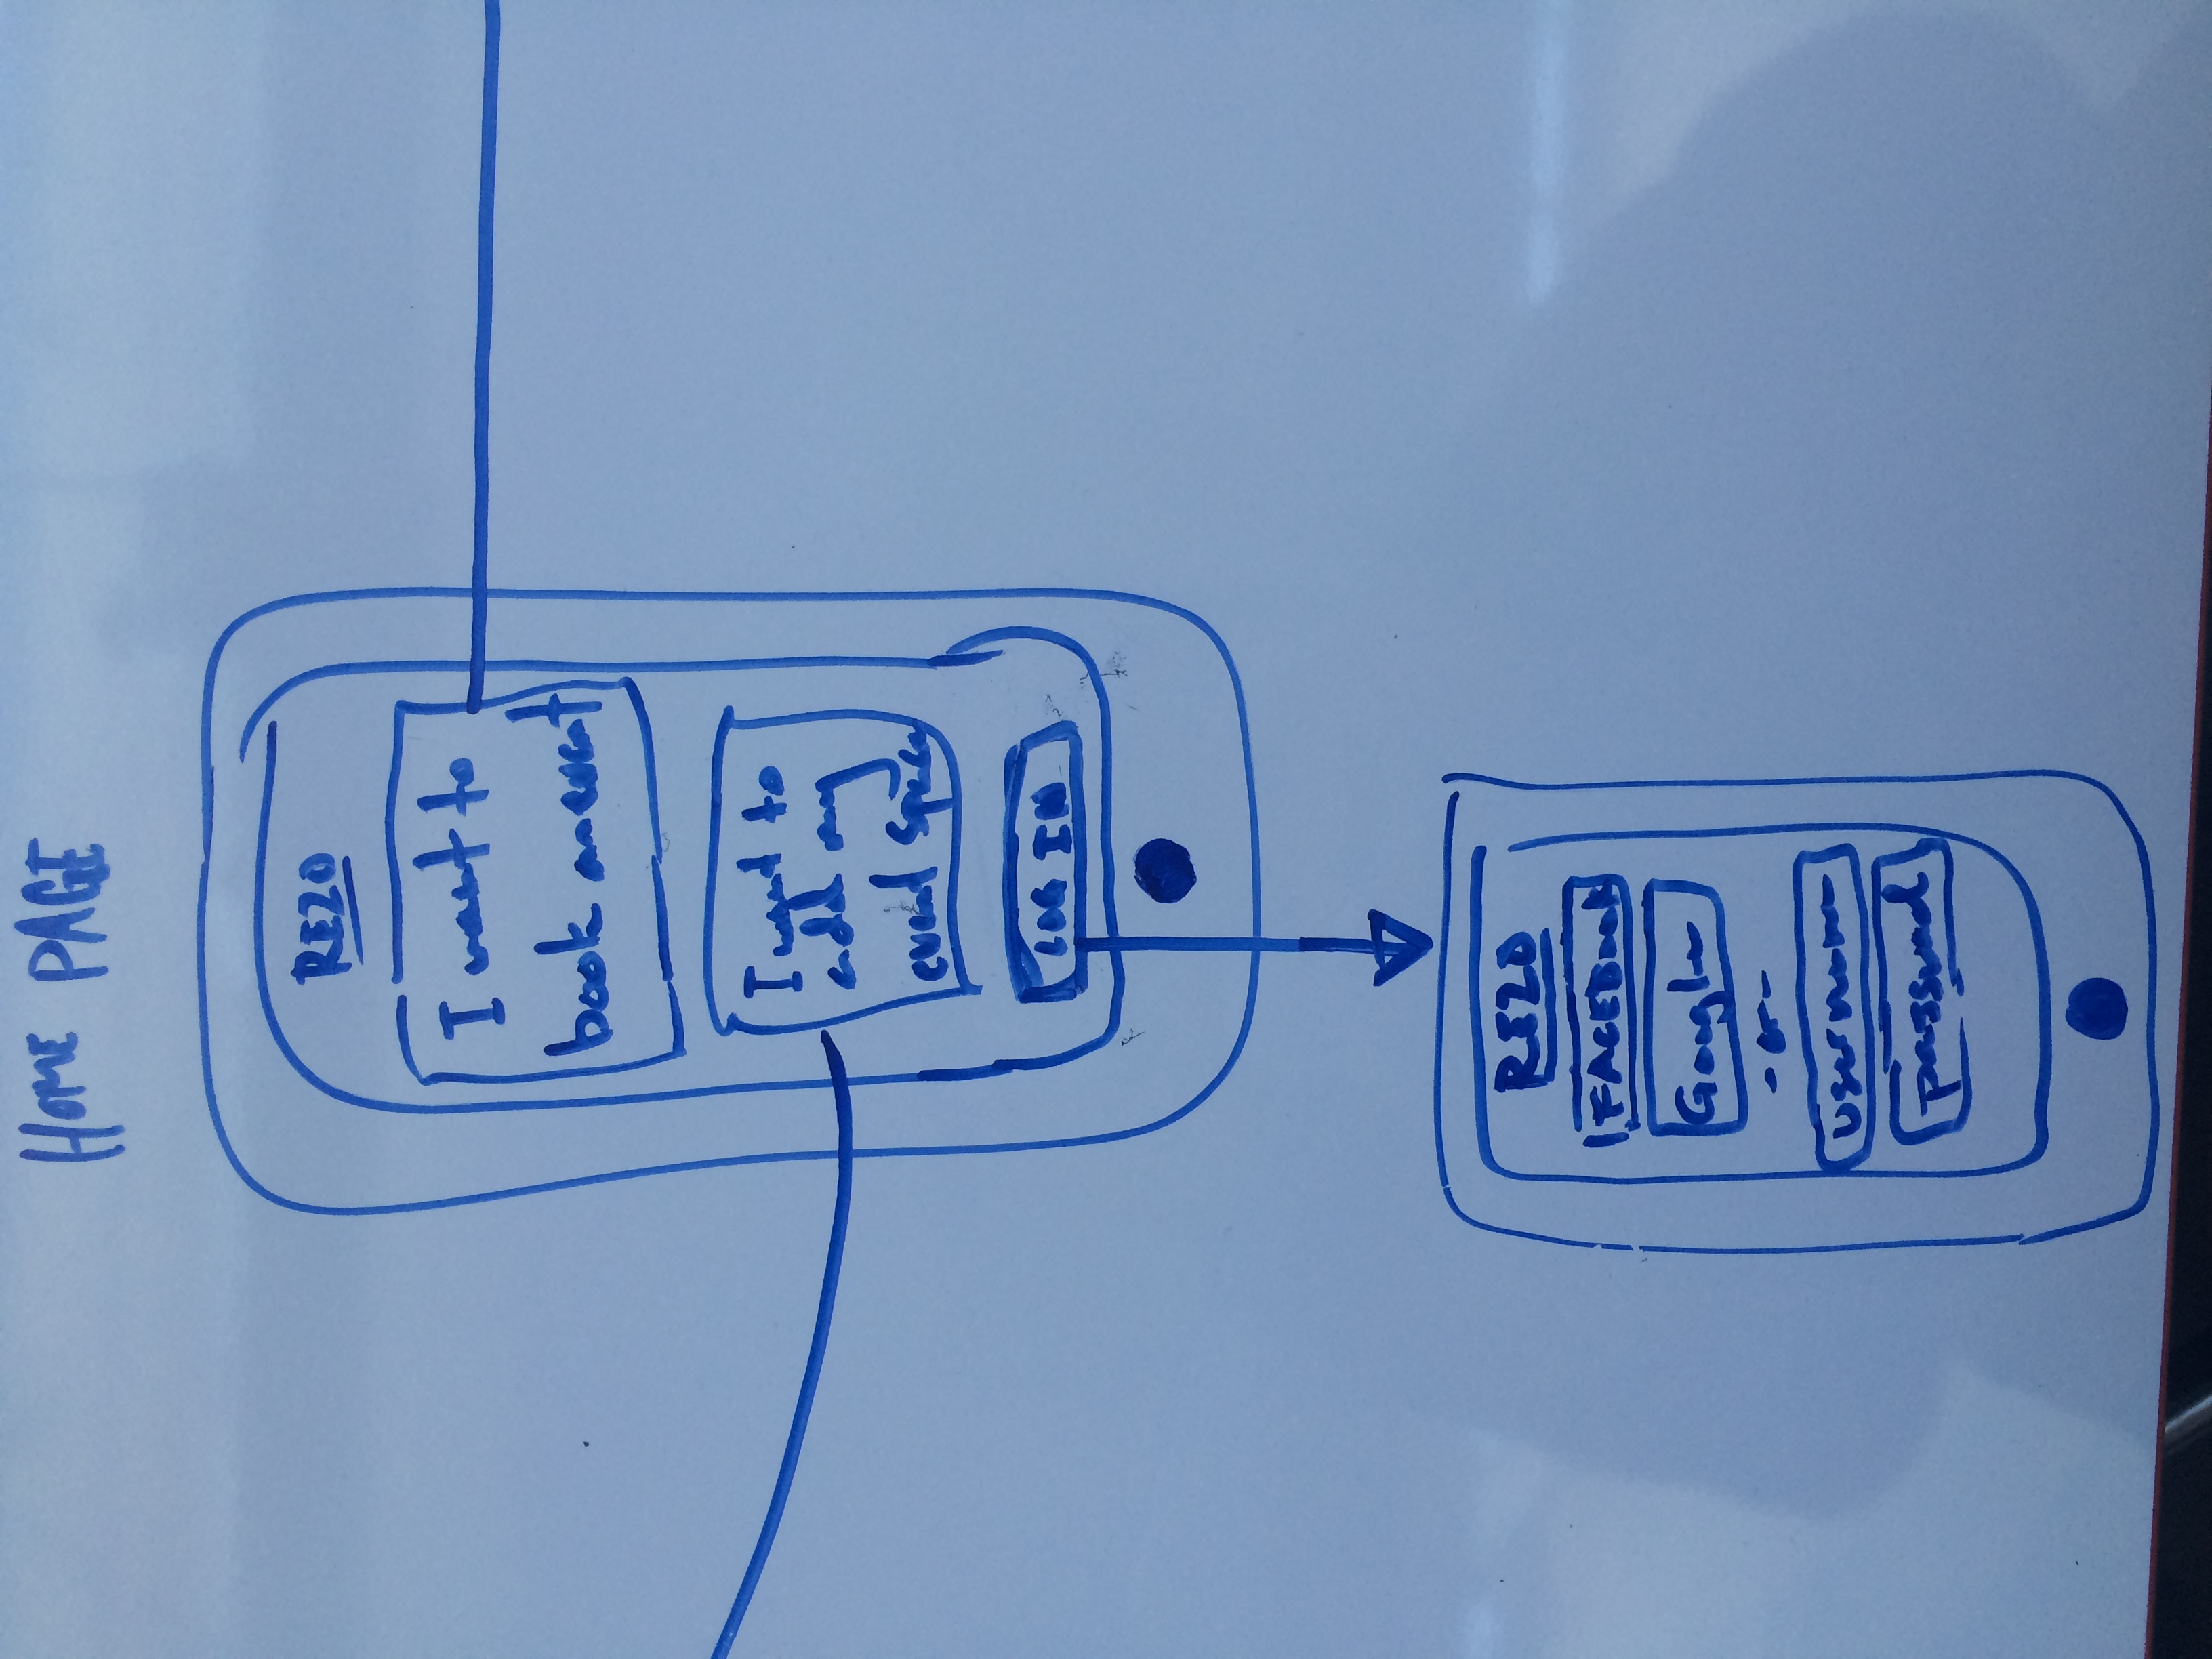 HOME PAGE
REZO
I want to
book an event
I want to
add my
event space
LOG IN
REZO
FACEBook
Google
- or -
username
password